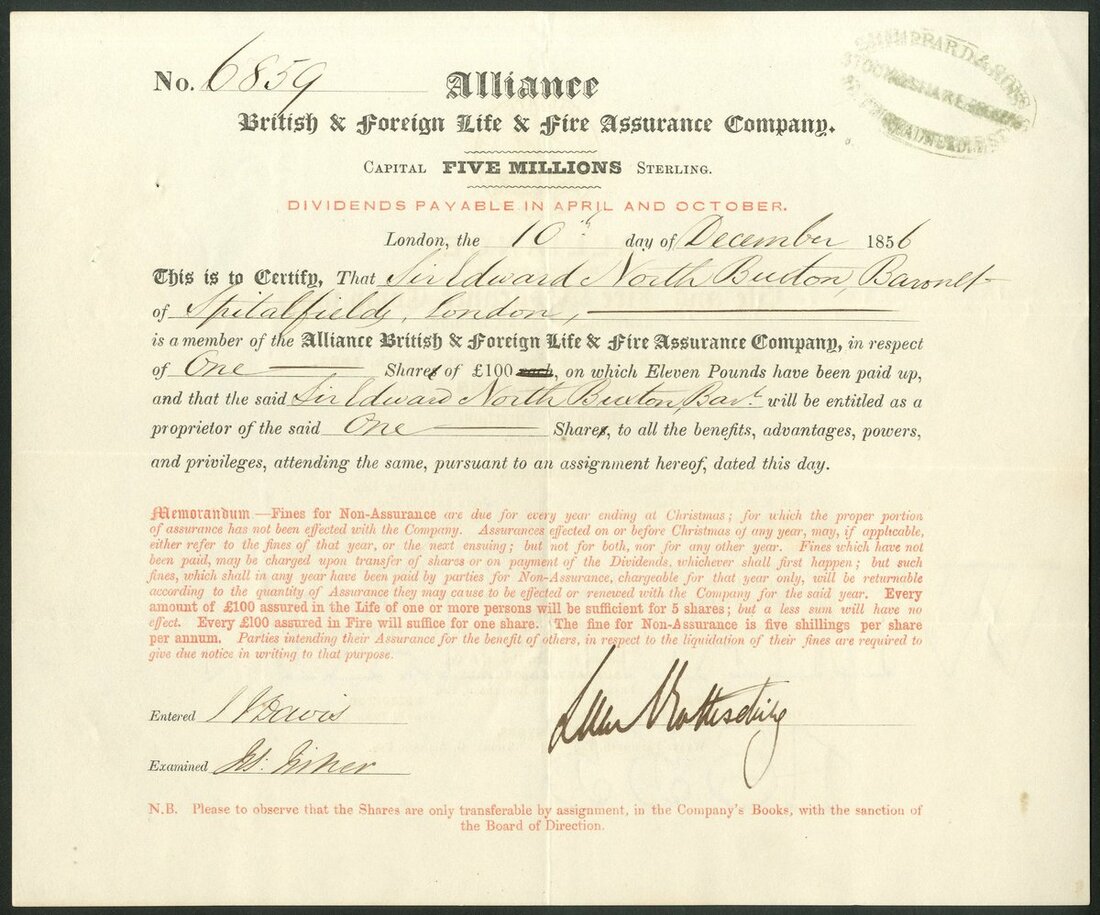 No. 6859
Alliance
British & Foreign Life & Fire Assurance Company.
CAPITAL FIVE MILLIONS STERLING.
DIVIDENDS PAYABLE IN APRIL AND OCTOBER.
London, the 10th day of December 1856
This is to Certify, That Sir Edward North Buxton, Baronet
of Spitalfields, London,
is a member of the Alliance British & Foreign Life & Fire Assurance Company, in respect
of One Share of £100 each, on which Eleven Pounds have been paid up,
and that the said Sir Edward North Buxton, Bart. will be entitled as a
proprietor of the said One Share, to all the benefits, advantages, powers,
and privileges, attending the same, pursuant to an assignment hereof, dated this day.
Memorandum.—Fines for Non-Assurance are due for every year ending at Christmas; for which the proper portion
of assurance has not been effected with the Company. Assurances effected on or before Christmas of any year, may, if applicable,
either refer to the fines of that year, or the next ensuing; but not for both, nor for any other year. Fines which have not
been paid, may be charged upon transfer of shares or on payment of the Dividends, whichever shall first happen; but such
fines, which shall in any year have been paid by parties for Non-Assurance, chargeable for that year only, will be returnable
according to the quantity of Assurance they may cause to be effected or renewed with the Company for the said year. Every
amount of £100 assured in the Life of one or more persons will be sufficient for 5 shares; but a less sum will have no
effect. Every £100 assured in Fire will suffice for one share. The fine for Non-Assurance is five shillings per share
per annum. Parties intending their Assurance for the benefit of others, in respect to the liquidation of their fines are required to
give due notice in writing to that purpose.
Entered Davis
Rothschild
Examined
N.B. Please to observe that the Shares are only transferable by assignment, in the Company's Books, with the sanction of
the Board of Direction.